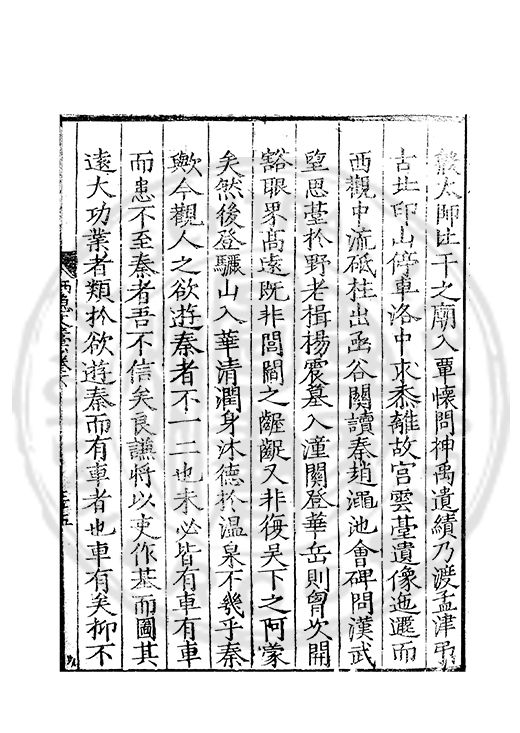 殷太師比干之廟入覃懷問神禹遺績乃渡孟津弔
古北邙山停車洛中求黍離故宮雲臺遺像迤邐而
西觀中流砥柱出函谷關讀秦趙澠池會碑問漢武
望思臺扵野老揖楊震墓入潼關登華岳則胷次開
豁眼界髙遠既非閭閻之齷齪又非復吴下之阿蒙
矣然後登驪山入華清潤身沐德扵温泉不幾乎秦
歟今觀人之欲逰秦者不一二也未必皆有車有車
而患不至秦者吾不信矣良謙將以吏作基而圖其
遠大功業者類扵欲逰秦而有車者也車有矣抑不